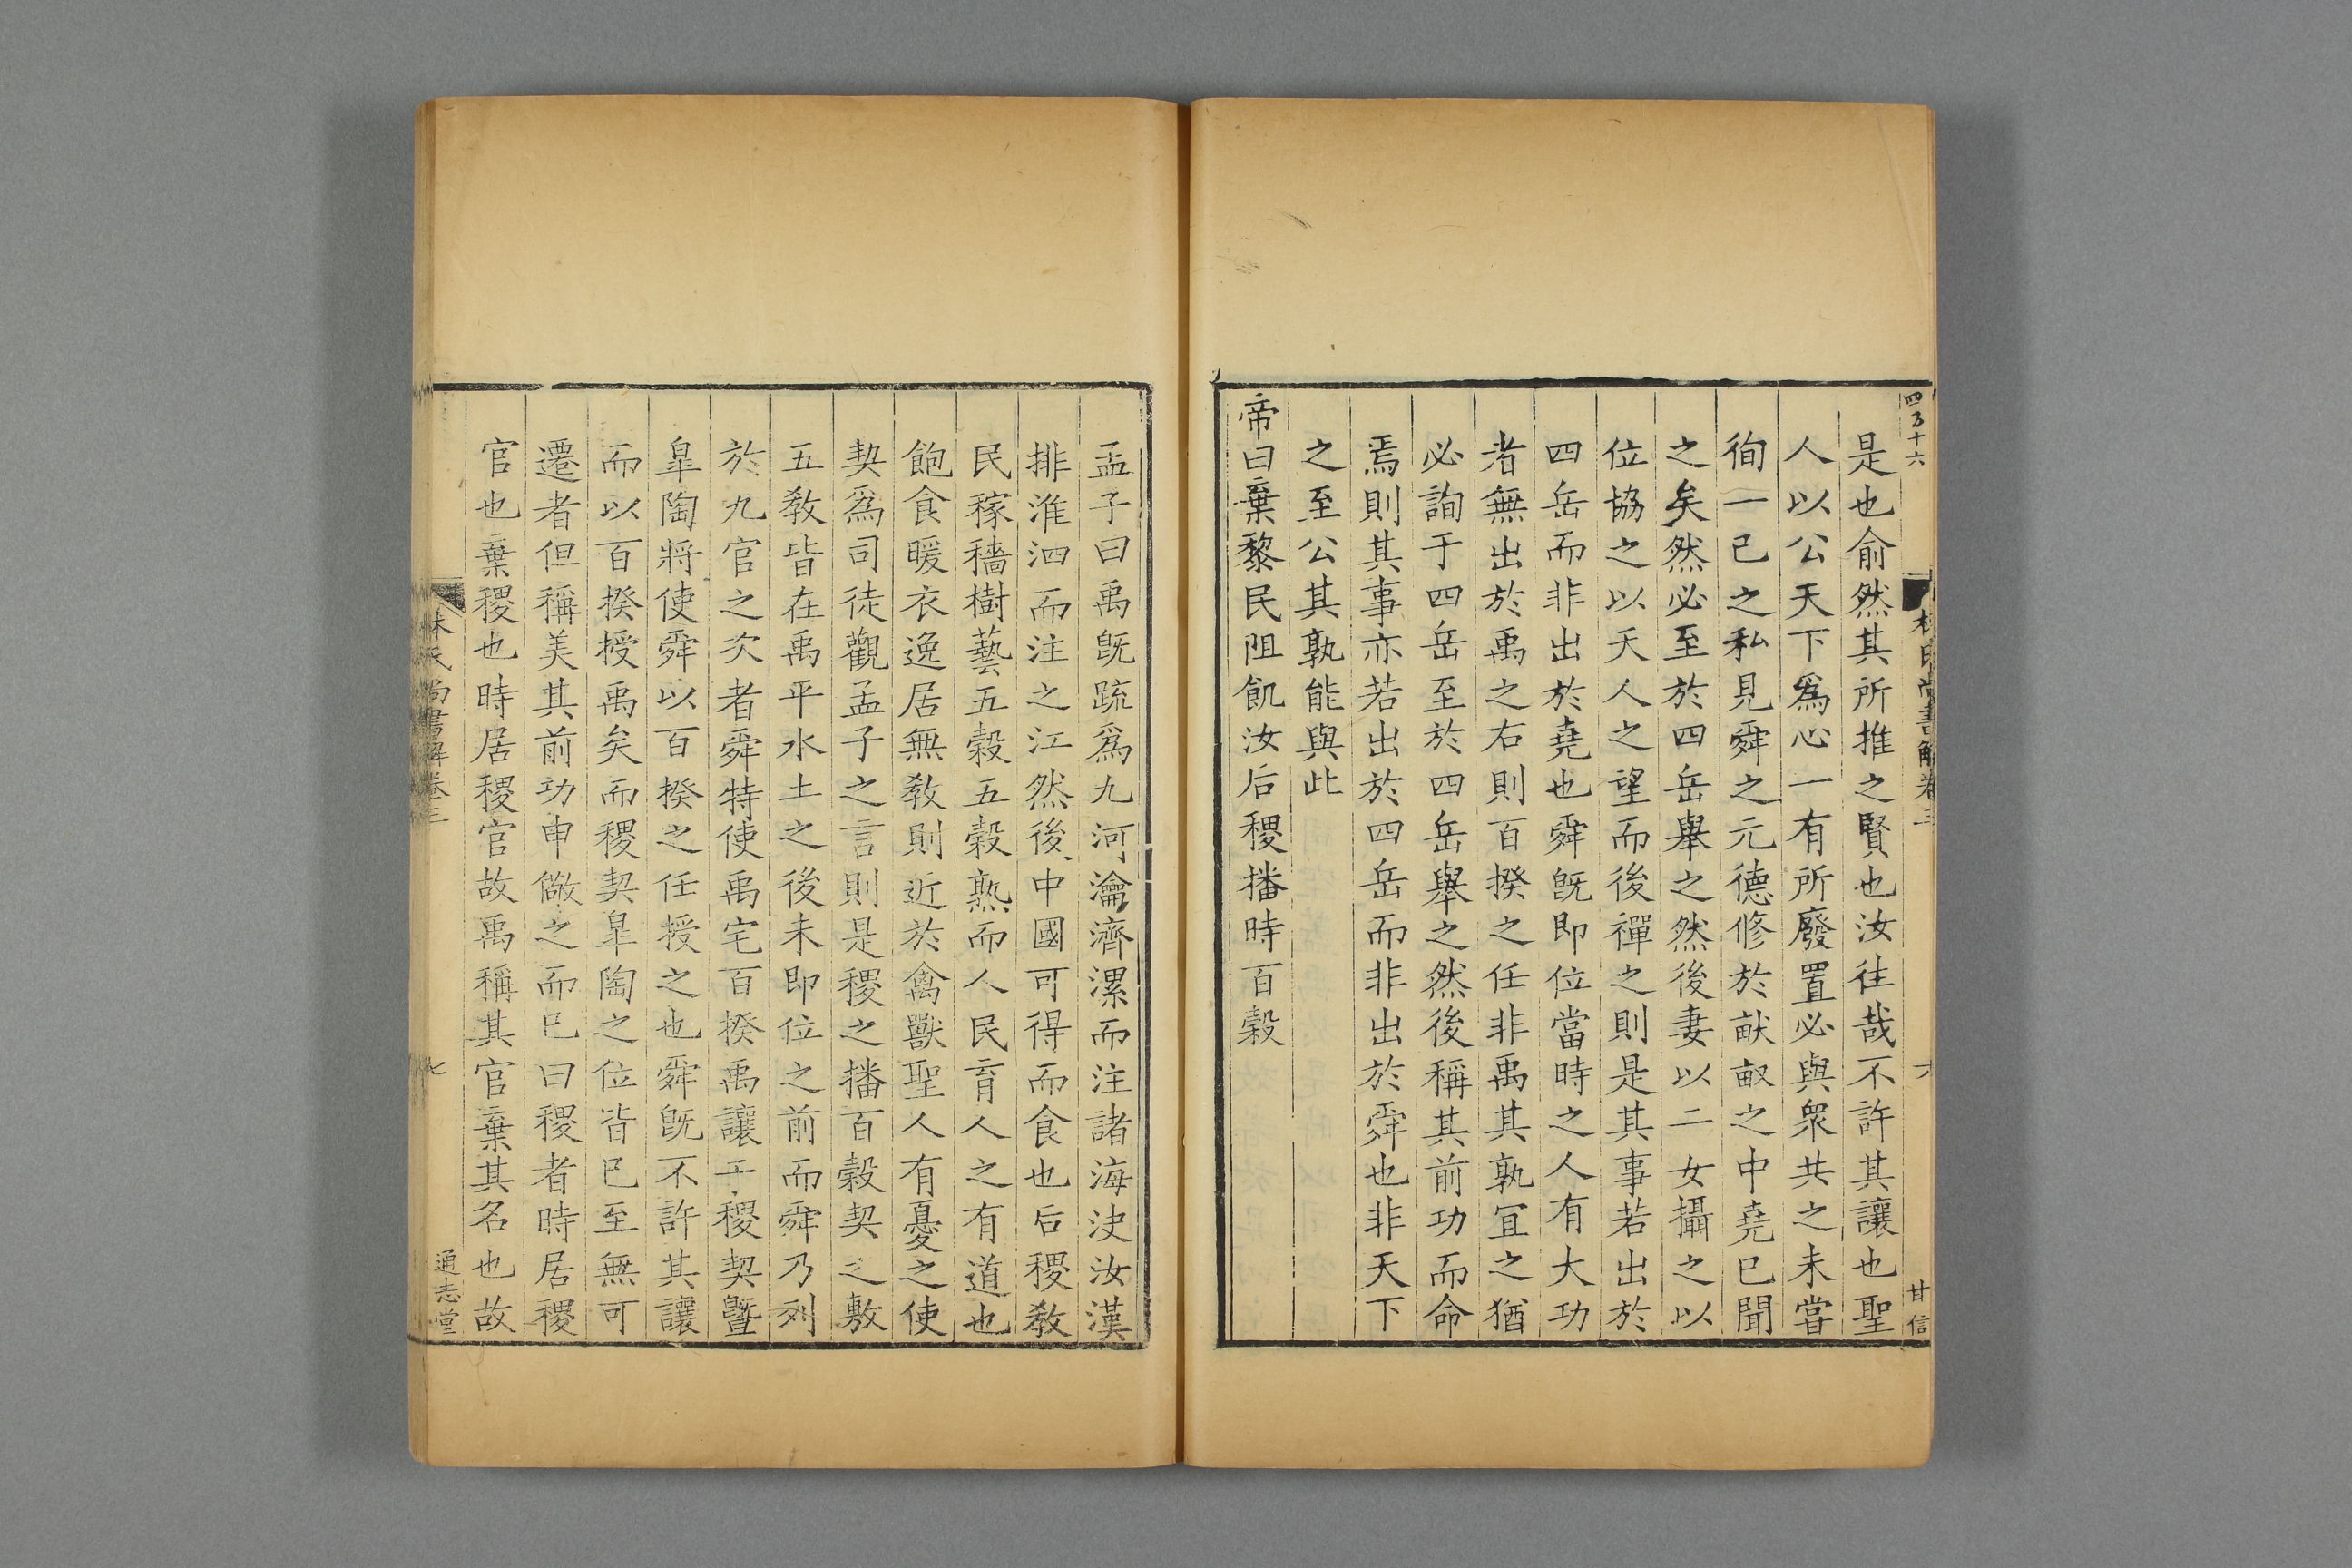 四百十六
甘信
是也俞然其所推之賢也汝往哉不許其讓也聖
人以公天下爲心一有所廢置必與衆共之未嘗
徇一己之私見舜之元德修於畎畝之中堯已聞
之矣然必至於四岳舉之然後妻以二女攝之以
位協之以天人之望而後禪之則是其事若出於
四岳而非出於堯也舜旣即位當時之人有大功
者無出於禹之右則百揆之任非禹其孰宜之猶
必詢于四岳至於四岳舉之然後稱其前功而命
焉則其事亦若出於四岳而非出於舜也非天下
之至公其孰能與此
帝曰棄黎民阻飢汝后稷播時百穀
孟子曰禹旣疏爲九河瀹濟漯而注諸海決汝漢
排淮泗而注之江然後中國可得而食也后稷敎
民稼穡樹藝五穀五穀熟而人民育人之有道也
飽食暖衣逸居無敎則近於禽獸聖人有憂之使
契爲司徒觀孟子之言則是稷之播百穀契之敷
五敎皆在禹平水土之後未即位之前而舜乃列
於九官之次者舜特使禹宅百揆禹讓于稷契曁
皐陶將使舜以百揆之任授之也舜旣不許其讓
而以百揆授禹矣而稷契皐陶之位皆已至無可
遷者但稱美其前功申儆之而已曰稷者時居稷
官也棄稷也時居稷官故禹稱其官棄其名也故
林氏尚書解卷三
七
通志堂